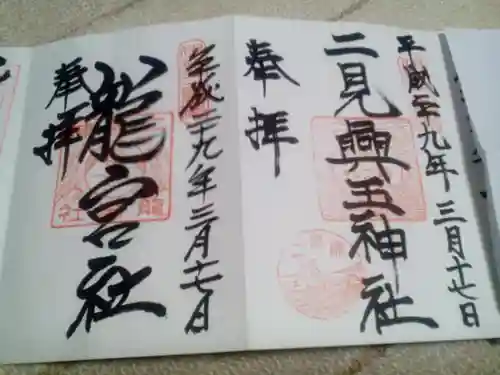 平成二十九年三月十七日
二見興玉神社
奉拝
平成二十九年三月十七日
龍宮社
奉拝